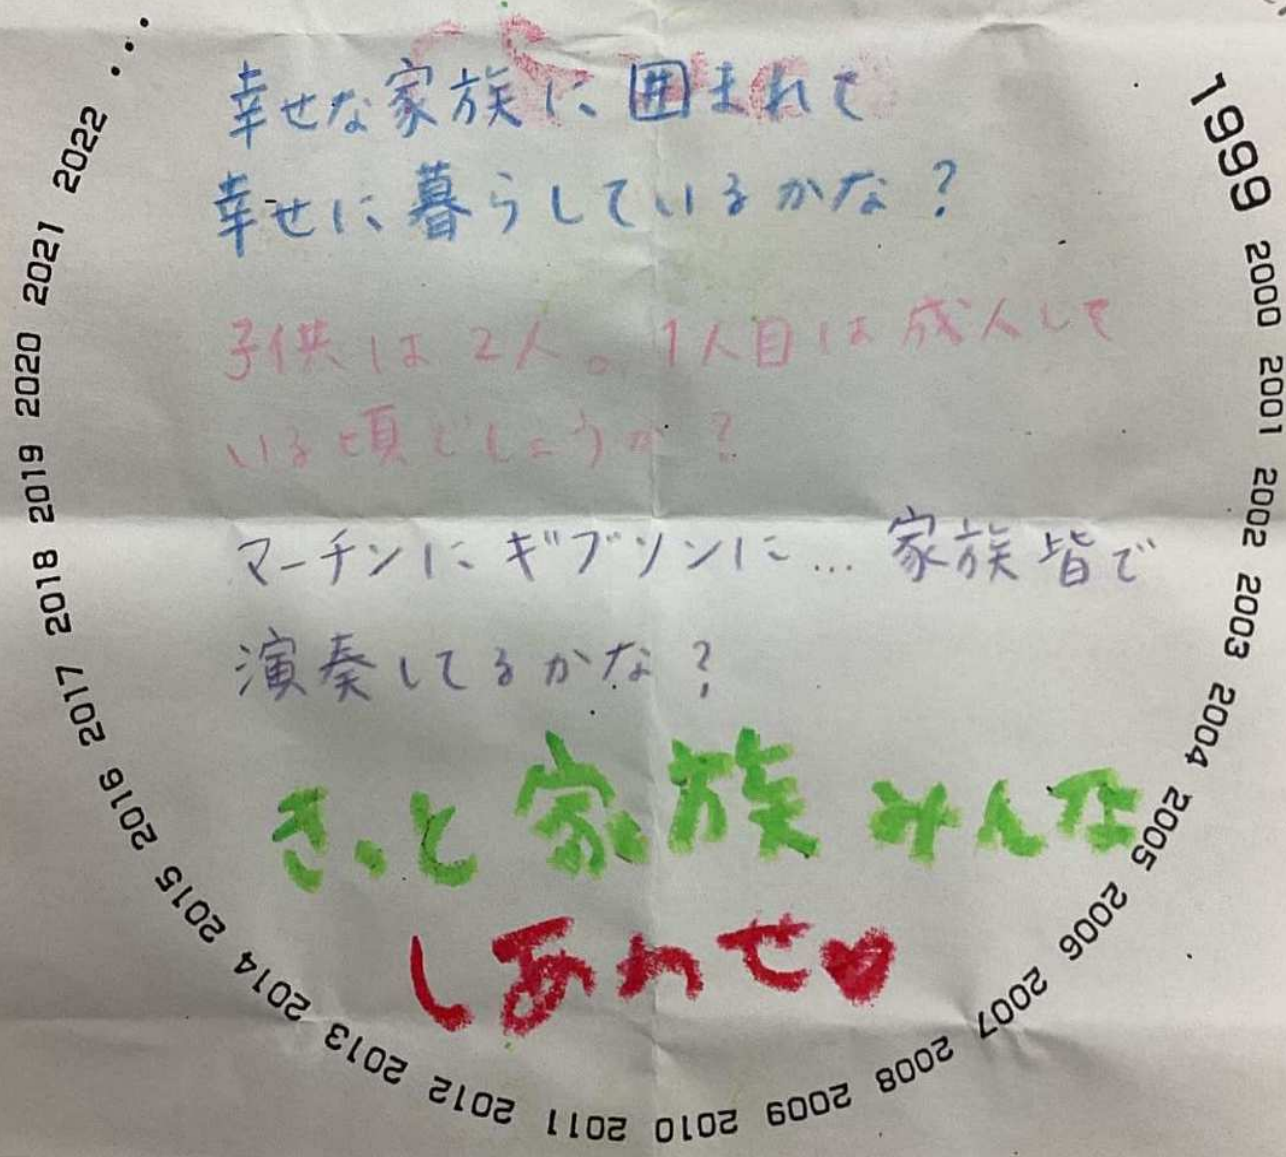 幸せな家族に囲まれて
幸せに暮らしているかな？
子供は2人。1人目は成人して
いる頃でしょうか？
マーチンにギブソンに…家族皆で
演奏してるかな？
きっと家族みんな
しあわせ♥
1999 2000 2001 2002 2003 2004 2005 2006 2007 2008 2009 2010 2011 2012 2013 2014 2015 2016 2017 2018 2019 2020 2021 2022 ...